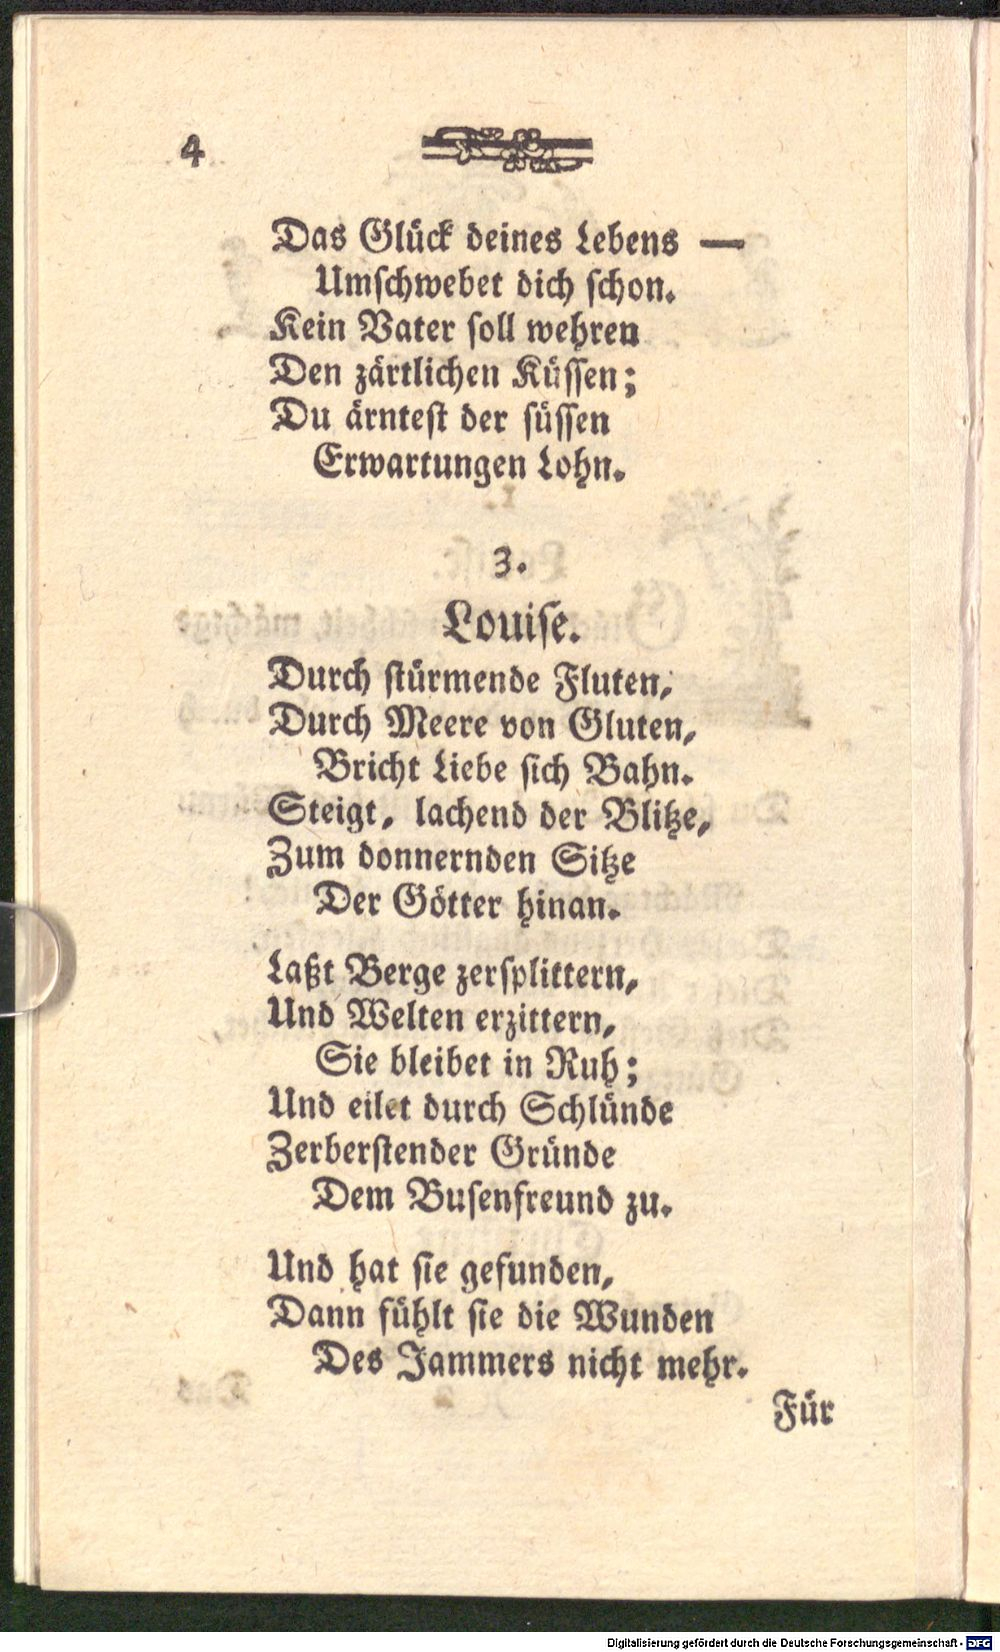 4
Das Glück deines Lebens —
Umschwebet dich schon.
Kein Vater soll wehren
Den zärtlichen Küssen;
Du ärntest der süssen
Erwartungen Lohn.
3.
Louise.
Durch stürmende Fluten,
Durch Meere von Gluten,
Bricht Liebe sich Bahn.
Steigt, lachend der Blitze,
Zum donnernden Sitze
Der Götter hinan.
Laßt Berge zersplittern,
Und Welten erzittern,
Sie bleibet in Ruh;
Und eilet durch Schlünde
Zerberstender Gründe
Dem Busenfreund zu.
Und hat sie gefunden,
Dann fühlt sie die Wunden
Des Jammers nicht mehr.
Für
Digitalisierung gefördert durch die Deutsche Forschungsgemeinschaft - DFG